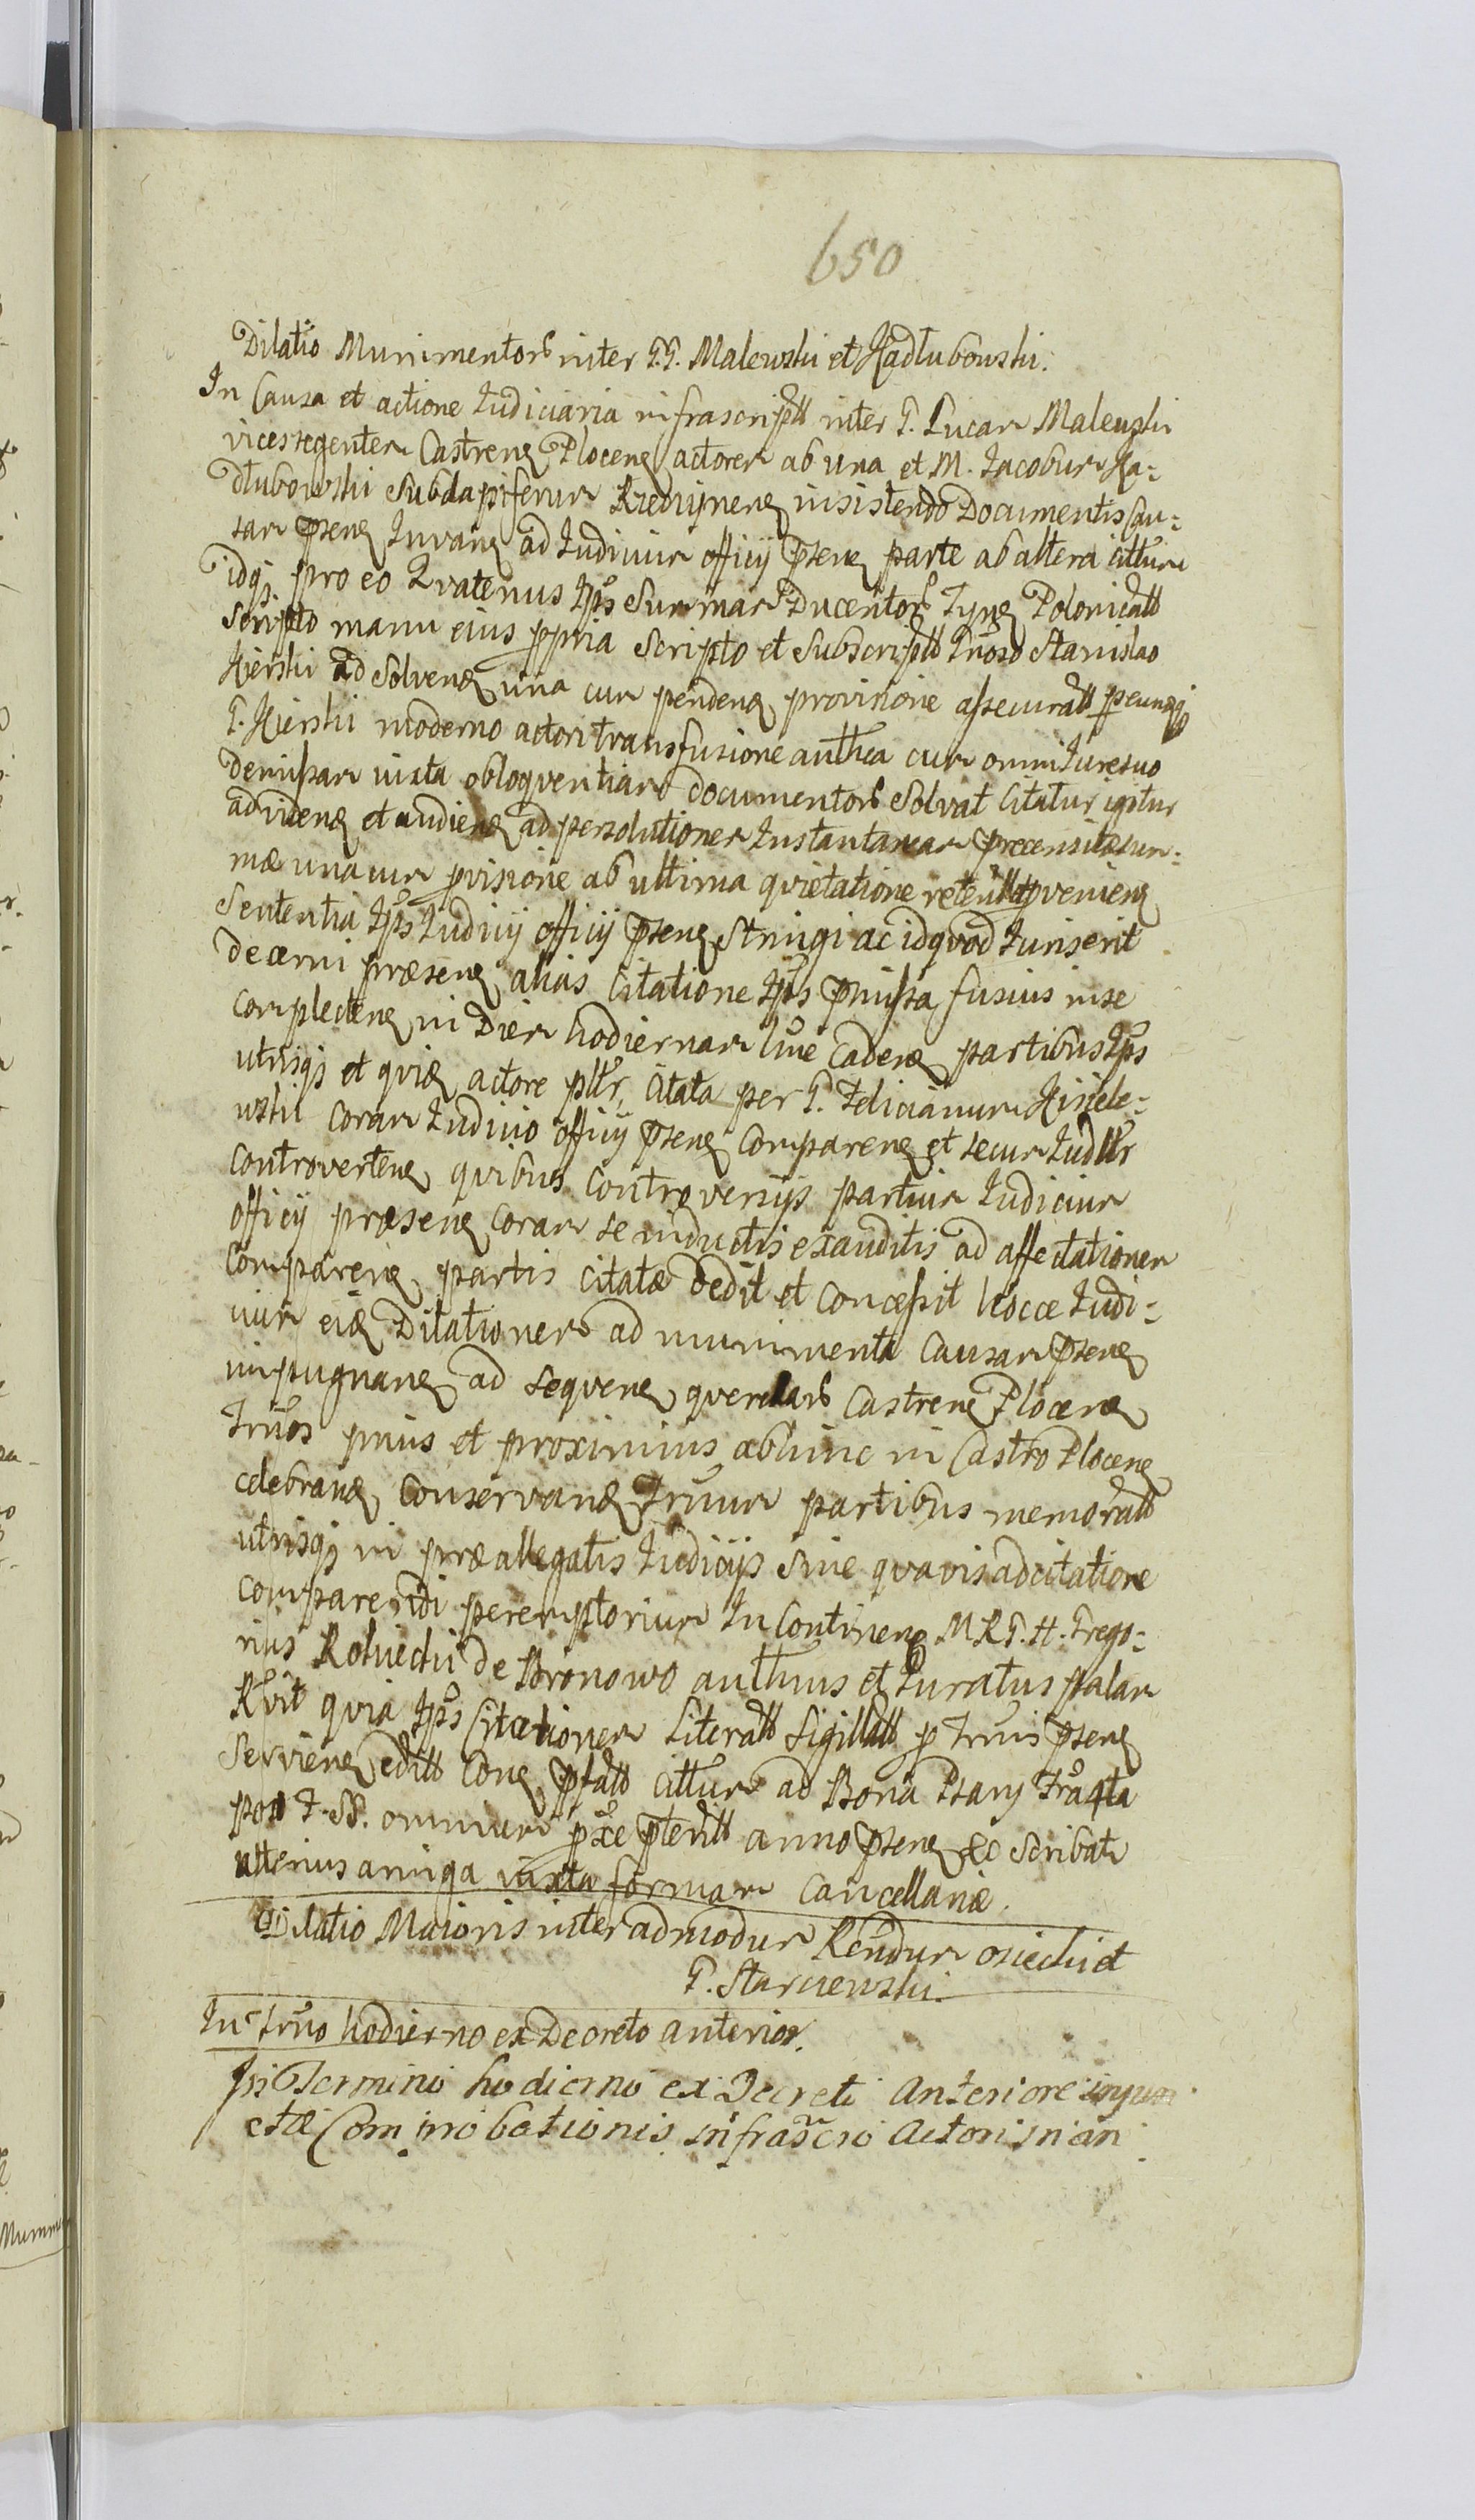 650
Dilatio Munimentor inter G.G. Malewski et Kadłubowski.
In Causa et actione Judiciaria infrascriptt inter G. Lucam Malewski
vicesregentem Castrens Plocens actorem ab una et M. Jacobum Ka-
dłubowski Subdapiferum insistendo Documentis Cau-
sam psens Juvans ad Judicium officij psens parte ab altera cittum
idq pro eo Quatenus Ips Summam Ducentor Tynf Polonicatt
Scripto manu eius ppria Scripto et Subscriptt Gnoso Stanislao
Kierski ad Solvend una cum pendend provisione assecuratt
G. Kierski moderno actori transfusione authca cum omni Jure suo
demissam iuxta obloquentiam documentor Solvat Citatur igitur
ad vidend et audiend ad persolutionem Instantaneam præcensitæ sum-
mæ una cum pvisione ab ultima quietatione retentt pveniens
Sententia Ips Judicij officij psens Stringi ac id quod Juris erit
decerni præsens alias Citatione Ips pmissa fusius in se
complectens in Diem hodiernam lme Cadens partibus Ips
utrisq et quid actore pltr, Citata per G. Felicianum Kisiele-
wski Coram Judicio officij psens Comparens et secum Judltr
Controvertens quibus Controversijs partium Judicium
officij præsens Coram se inductis exauditis ad affectationem
Comparens partis Citatæ dedit et Concessit hocce Judi-
cium eid Dilationem ad munimenta Causam psens
impugnans ad sequens querelar Castrens Plocens
Trnos prius et proximius abhinc in Castro Plocens
celebrand Conservand Trnum partibus memoratt
utrisq in præallegatis Judicijs Sine quavis adcitatione
comparendi peremptorium In Continend M R G. H. Grego-
rius Rolwiecki de Bronowo authcus et Juratus palam
Rvit quia Ips Citationem Literatt Sigillatt p Trnis psens
Serviens editt Cong pfatt cittum ad Bona Psary
post F. SS. omnium pxe pteritt anno psens &c Scribatr
ulterius amiqa iuxta formam Cancellariæ.
Dilatio Maioris inter admodum Rendum osiecki et
G. Starczewski.
In Trno hodierno ex Decreto anterior.
In Termino hodierno ex Decreti Anteriore
ctæ Comprobationis infrascro Actori